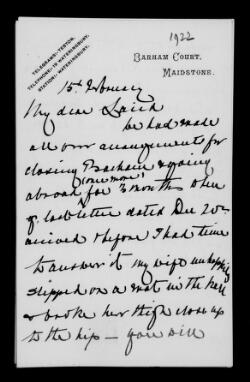 1922
TELEGRAMS: TESTON.
TELEPHONE: 70 WATERINGBURY.
STATION: WATERINGBURY.
BARHAM COURT,
MAIDSTONE.
15 February
My dear Laird
we had made
all our arrangements for
closing Barham & going
(once more)
abroad for 3 months when
yr last letter dated Dec 20th
arrived & before I had time
to answer it my wife unhappily
slipped on a mat in the hall
& broke her thigh close up
to the hip — you will